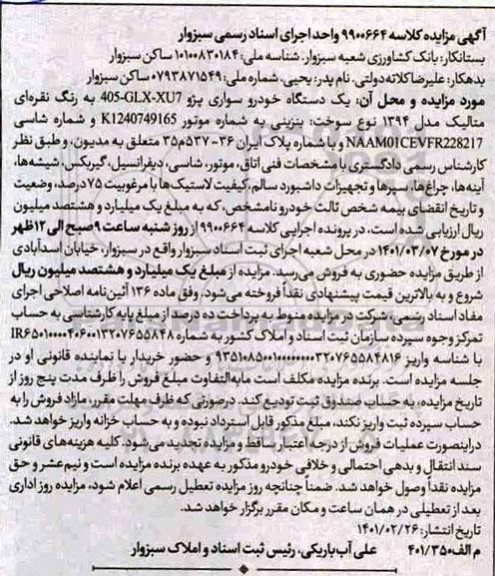 آگهی مزایده کلاسه ۹۹۰۰۶۶۴ واحد اجرای اسناد رسمی سبزوار
بستانکار: بانک کشاورزی شعبه سبزوار. شناسه ملی: ۱۰۱۰۰۸۳۰۱۸۴ ساکن سبزوار
بدهکار: علیرضا کلاته دولتی. نام پدر: یحیی. شماره ملی: ۰۷۹۳۸۷۱۵۴۹ ساکن سبزوار
مورد مزایده و محل آن: یک دستگاه خودرو سواری پژو 405-GLX-XU7 به رنگ نقره‌ای
متالیک مدل ۱۳۹۴ نوع سوخت: بنزینی به شماره موتور K1240749165 و شماره شاسی
NAAM01CEVFR228217 و با شماره پلاک ایران ۳۶-۵۳۷م۳۵ متعلق به مدیون، و طبق نظر
کارشناس رسمی دادگستری با مشخصات فنی اتاق، موتور، شاسی، دیفرانسیل، گیربکس، شیشه‌ها،
آینه‌ها، چراغ‌ها، سپرها و تجهیزات داشبورد سالم، کیفیت لاستیک‌ها با مرغوبیت ۷۵ درصد، وضعیت
و تاریخ انقضای بیمه شخص ثالث خودرو نامشخص، که به مبلغ یک میلیارد و هشتصد میلیون
ریال ارزیابی شده است. در پرونده اجرایی کلاسه ۹۹۰۰۶۶۴ از روز شنبه ساعت ۹ صبح الی ۱۲ ظهر
در مورخ ۱۴۰۱/۰۳/۰۷ در محل شعبه اجرای ثبت اسناد سبزوار واقع در سبزوار، خیابان اسدآبادی
از طریق مزایده حضوری به فروش می‌رسد. مزایده از مبلغ یک میلیارد و هشتصد میلیون ریال
شروع و به بالاترین قیمت پیشنهادی نقداً فروخته می‌شود. وفق ماده ۱۳۶ آئین‌نامه اصلاحی اجرای
مفاد اسناد رسمی، شرکت در مزایده منوط به پرداخت ده درصد از مبلغ پایه کارشناسی به حساب
تمرکز وجوه سپرده سازمان ثبت اسناد و املاک کشور به شماره
با شناسه واریز و حضور خریدار یا نماینده قانونی او در
جلسه مزایده است. برنده مزایده مکلف است مابه‌التفاوت مبلغ فروش را ظرف مدت پنج روز از
تاریخ مزایده، به حساب صندوق ثبت تودیع کند. درصورتی که ظرف مهلت مقرر، مازاد فروش را به
حساب سپرده ثبت واریز نکند، مبلغ مذکور قابل استرداد نبوده و به حساب خزانه واریز خواهد شد.
دراینصورت عملیات فروش از درجه اعتبار ساقط و مزایده تجدید می‌شود. کلیه هزینه‌های قانونی
سند انتقال و بدهی احتمالی و خلافی خودرو مذکور به عهده برنده مزایده است و نیم‌عشر و حق
مزایده نقداً وصول خواهد شد. ضمناً چنانچه روز مزایده تعطیل رسمی اعلام شود، مزایده روز اداری
بعد از تعطیلی در همان ساعت و مکان مقرر برگزار خواهد شد.
تاریخ انتشار: ۱۴۰۱/۰۲/۲۶
م الف ۴۰۱/۳۵۰ علی آب‌باریکی، رئیس ثبت اسناد و املاک سبزوار